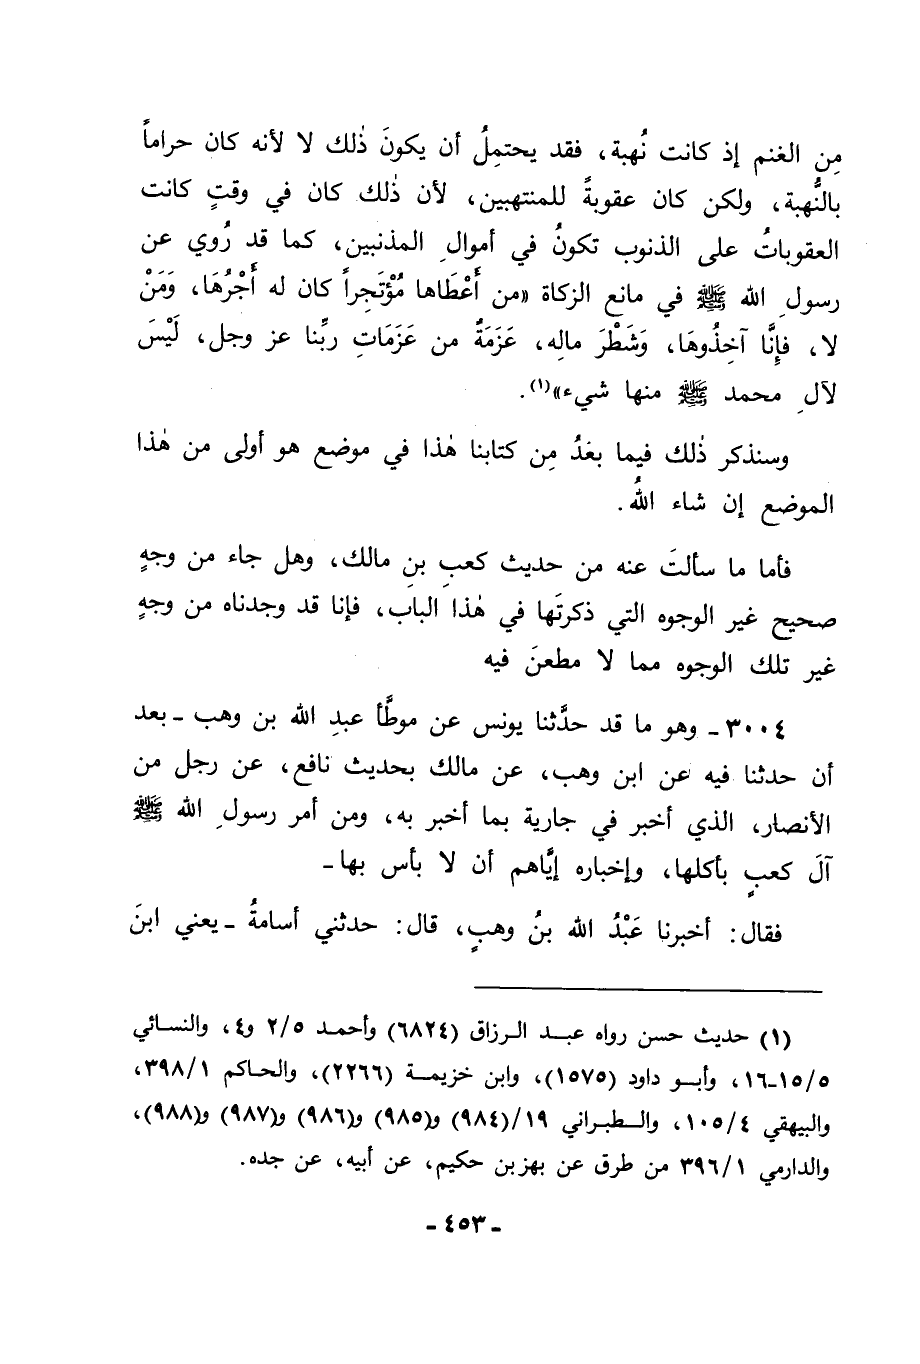 مِن الغنم إذ كانت نُهبة، فقد يحتمِلُ أن يكونَ ذٰلك لا لأنه كان حراماً
بالنُّهبة، ولكن كان عقوبةً للمنتهبين، لأن ذٰلك كان في وقتٍ كانت
العقوباتُ على الذنوب تكونُ في أموالِ المذنبين، كما قد رُوي عن
رسولِ الله ﷺ في مانع الزكاة «من أَعْطَاها مُؤْتَجِراً كان له أَجْرُهَا، وَمَنْ
لا، فإِنَّا آخِذُوهَا، وَشَطْرَ مالِه، عَزَمَةٌ من عَزَمَاتِ ربِّنا عز وجل، لَيْسَ
لآلِ محمد ﷺ منها شيء»(١).
وسنذكر ذٰلك فيما بعدُ مِن كتابنا هٰذا في موضع هو أولى من هٰذا
الموضع إن شاء اللهُ.
فأما ما سألتَ عنه من حديث كعبِ بنِ مالك، وهل جاء من وجهٍ
صحيح غير الوجوه التي ذكرتَها في هٰذا الباب، فإنا قد وجدناه من وجهٍ
غير تلك الوجوه مما لا مطعنَ فيه
٣٠٠٤ ـ وهو ما قد حدَّثنا يونس عن موطَّأ عبدِ الله بن وهب ـ بعد
أن حدثنا فيه عن ابن وهب، عن مالك بحديث نافع، عن رجل من
الأنصار، الذي أخبر في جارية بما أخبر به، ومن أمر رسولِ الله ﷺ
آلَ كعبٍ بأكلها، وإخباره إيَّاهم أن لا بأس بها ـ
فقال: أخبرنا عَبْدُ الله بنُ وهبٍ، قال: حدثني أسامةُ ـ يعني ابنَ
(١) حديث حسن رواه عبد الرزاق (٦٨٢٤) وأحمد ٢/٥ و٤، والنسائي
١٥/٥ـ١٦، وأبو داود (١٥٧٥)، وابن خزيمة (٢٢٦٦)، والحاكم ٣٩٨/١،
والبيهقي ١٠٥/٤، والطبراني ١٩/(٩٨٤) و(٩٨٥) و(٩٨٦) و(٩٨٧) و(٩٨٨)،
والدارمي ٣٩٦/١ من طرق عن بهز بن حكيم، عن أبيه، عن جده.
ـ ٤٥٣ ـ